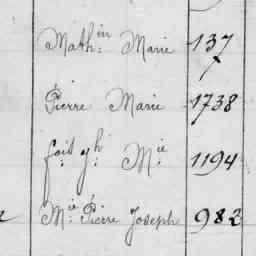 Math:in Marie 137
Pierre Marie 1738
fois yh: Mie: 1194
Mie: Pierre Joseph 982